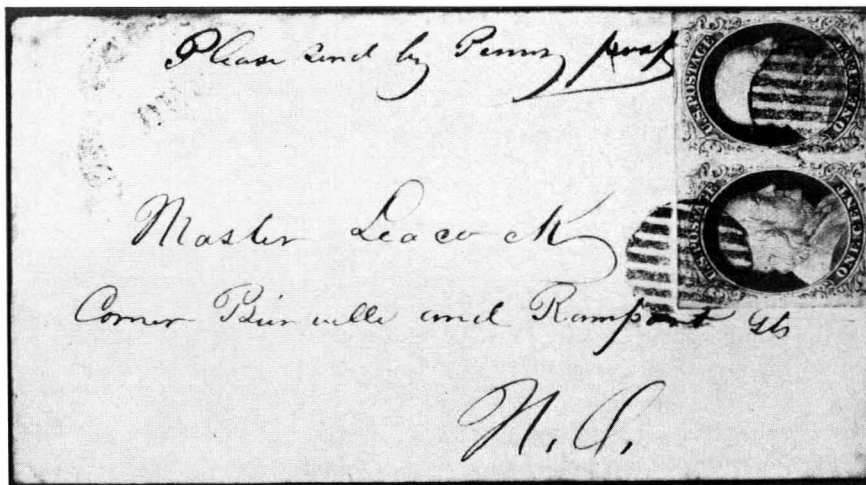 Please send by Penny post
U.S. POSTAGE
ONE CENT
U.S. POSTAGE
ONE CENT
Master Leacock
Corner Bienville and Rampart Sts
N. O.